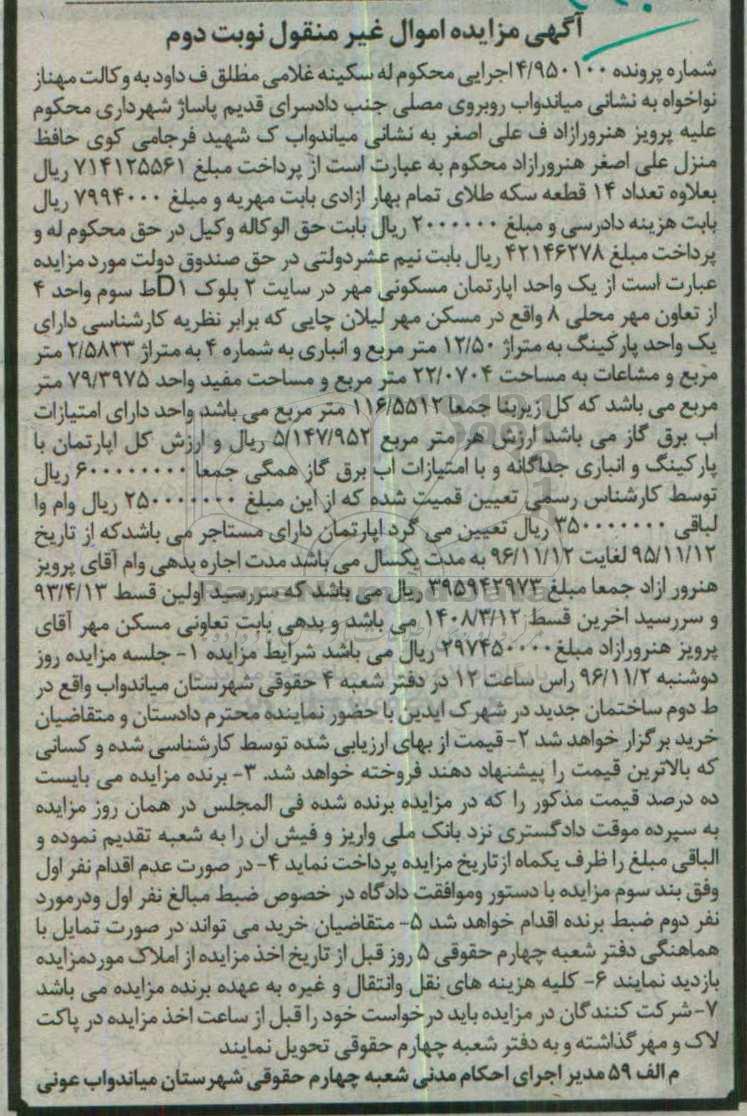 آگهی مزایده اموال غیر منقول نوبت دوم
شماره پرونده ۴/۹۵۰۱۰۰ اجرایی محکوم له سکینه غلامی مطلق ف داود به وکالت مهناز
نواخواه به نشانی میاندواب روبروی مصلی جنب دادسرای قدیم پاساژ شهرداری محکوم
علیه پرویز هنرورازاد ف علی اصغر به نشانی میاندواب ک شهید فرجامی کوی حافظ
منزل علی اصغر هنرورازاد محکوم به عبارت است از پرداخت مبلغ ۷۱۴۱۲۵۵۶۱ ریال
بعلاوه تعداد ۱۴ قطعه سکه طلای تمام بهار ازادی بابت مهریه و مبلغ ۷۹۹۴۰۰۰ ریال
بابت هزینه دادرسی و مبلغ ۲۰۰۰۰۰۰ ریال بابت حق الوکاله وکیل در حق محکوم له و
پرداخت مبلغ ۴۲۱۴۶۲۷۸ ریال بابت نیم عشر دولتی در حق صندوق دولت مورد مزایده
عبارت است از یک واحد اپارتمان مسکونی مهر در سایت ۲ بلوک D۱ ط سوم واحد ۴
از تعاون مهر محلی ۸ واقع در مسکن مهر لیلان چایی که برابر نظریه کارشناسی دارای
یک واحد پارکینگ به متراژ ۱۲/۵۰ متر مربع و انباری به شماره ۴ به متراژ ۲/۵۸۳۳ متر
مربع و مشاعات به مساحت ۲۲/۰۷۰۴ متر مربع و مساحت مفید واحد ۷۹/۳۹۷۵ متر
مربع می باشد که کل زیربنا جمعا ۱۱۶/۵۵۱۲ متر مربع می باشد واحد دارای امتیازات
اب برق گاز می باشد ارزش هر متر مربع ۵/۱۴۷/۹۵۲ ریال و ارزش کل اپارتمان با
پارکینگ و انباری جداگانه و با امتیازات اب برق گاز همگی جمعا ۶۰۰۰۰۰۰۰۰ ریال
توسط کارشناس رسمی تعیین قمیت شده که از این مبلغ ۲۵۰۰۰۰۰۰۰ ریال وام وا
لباقی ۳۵۰۰۰۰۰۰۰ ریال تعیین می گرد اپارتمان دارای مستاجر می باشد که از تاریخ
۹۵/۱۱/۱۲ لغایت ۹۶/۱۱/۱۲ به مدت یکسال می باشد مدت اجاره بدهی وام آقای پرویز
هنرور ازاد جمعا مبلغ ۳۹۵۹۴۲۹۷۳ ریال می باشد که سررسید اولین قسط ۹۳/۴/۱۳
و سررسید اخرین قسط ۱۴۰۸/۳/۱۲ می باشد و بدهی بابت تعاونی مسکن مهر آقای
پرویز هنرورازاد مبلغ ۲۹۷۴۵۰۰۰۰ ریال می باشد شرایط مزایده ۱- جلسه مزایده روز
دوشنبه ۹۶/۱۱/۲ راس ساعت ۱۲ در دفتر شعبه ۴ حقوقی شهرستان میاندواب واقع در
ط دوم ساختمان جدید در شهرک ایدین با حضور نماینده محترم دادستان و متقاضیان
خرید برگزار خواهد شد ۲- قیمت از بهای ارزیابی شده توسط کارشناسی شده و کسانی
که بالاترین قیمت را پیشنهاد دهند فروخته خواهد شد. ۳- برنده مزایده می بایست
ده درصد قیمت مذکور را که در مزایده برنده شده فی المجلس در همان روز مزایده
به سپرده موقت دادگستری نزد بانک ملی واریز و فیش ان را به شعبه تقدیم نموده و
الباقی مبلغ را ظرف یکماه از تاریخ مزایده پرداخت نماید ۴- در صورت عدم اقدام نفر اول
وفق بند سوم مزایده با دستور وموافقت دادگاه در خصوص ضبط مبالغ نفر اول ودرمورد
نفر دوم ضبط برنده اقدام خواهد شد ۵- متقاضیان خرید می تواند در صورت تمایل با
هماهنگی دفتر شعبه چهارم حقوقی ۵ روز قبل از تاریخ اخذ مزایده از املاک موردمزایده
بازدید نمایند ۶- کلیه هزینه های نقل وانتقال و غیره به عهده برنده مزایده می باشد
۷- شرکت کنندگان در مزایده باید درخواست خود را قبل از ساعت اخذ مزایده در پاکت
لاک و مهر گذاشته و به دفتر شعبه چهارم حقوقی تحویل نمایند
م الف ۵۹ مدیر اجرای احکام مدنی شعبه چهارم حقوقی شهرستان میاندواب عونی